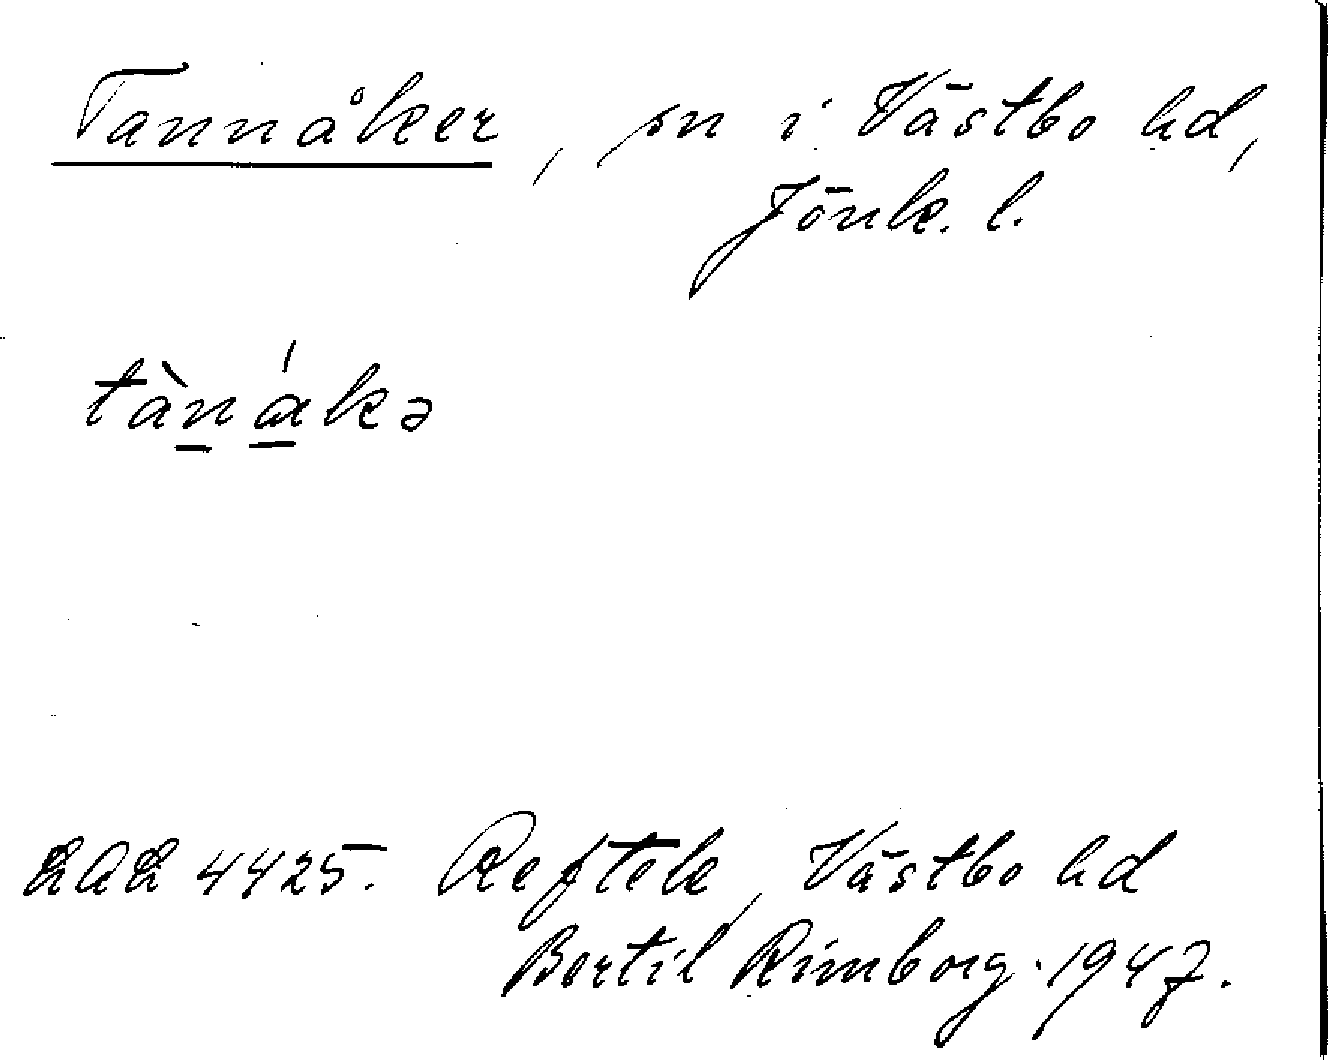 Tannåker, sn i Västbo hd,
Jönk. l.
tànákə
LAL 4425. Reftele, Västbo hd
Bertil Rimborg. 1947.